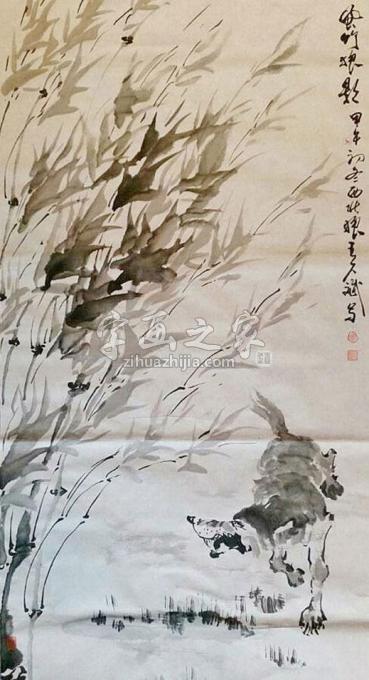 風竹狼影 甲午初冬西北狼王
字画之家
zihuazhijia.com